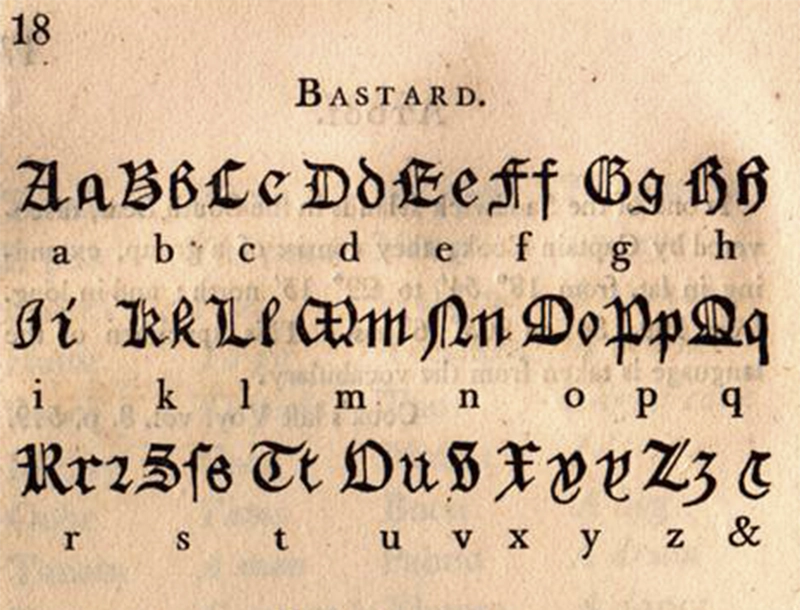 18
BASTARD.
Aa Bb Cc Dd Ee Ff Gg Hh
a b c d e f g h
Ii Kk Ll Mm Nn Oo Pp Qq
i k l m n o p q
Rrꝛ Sſs Tt Uu v Xx yy Zz &
r s t u v x y z &